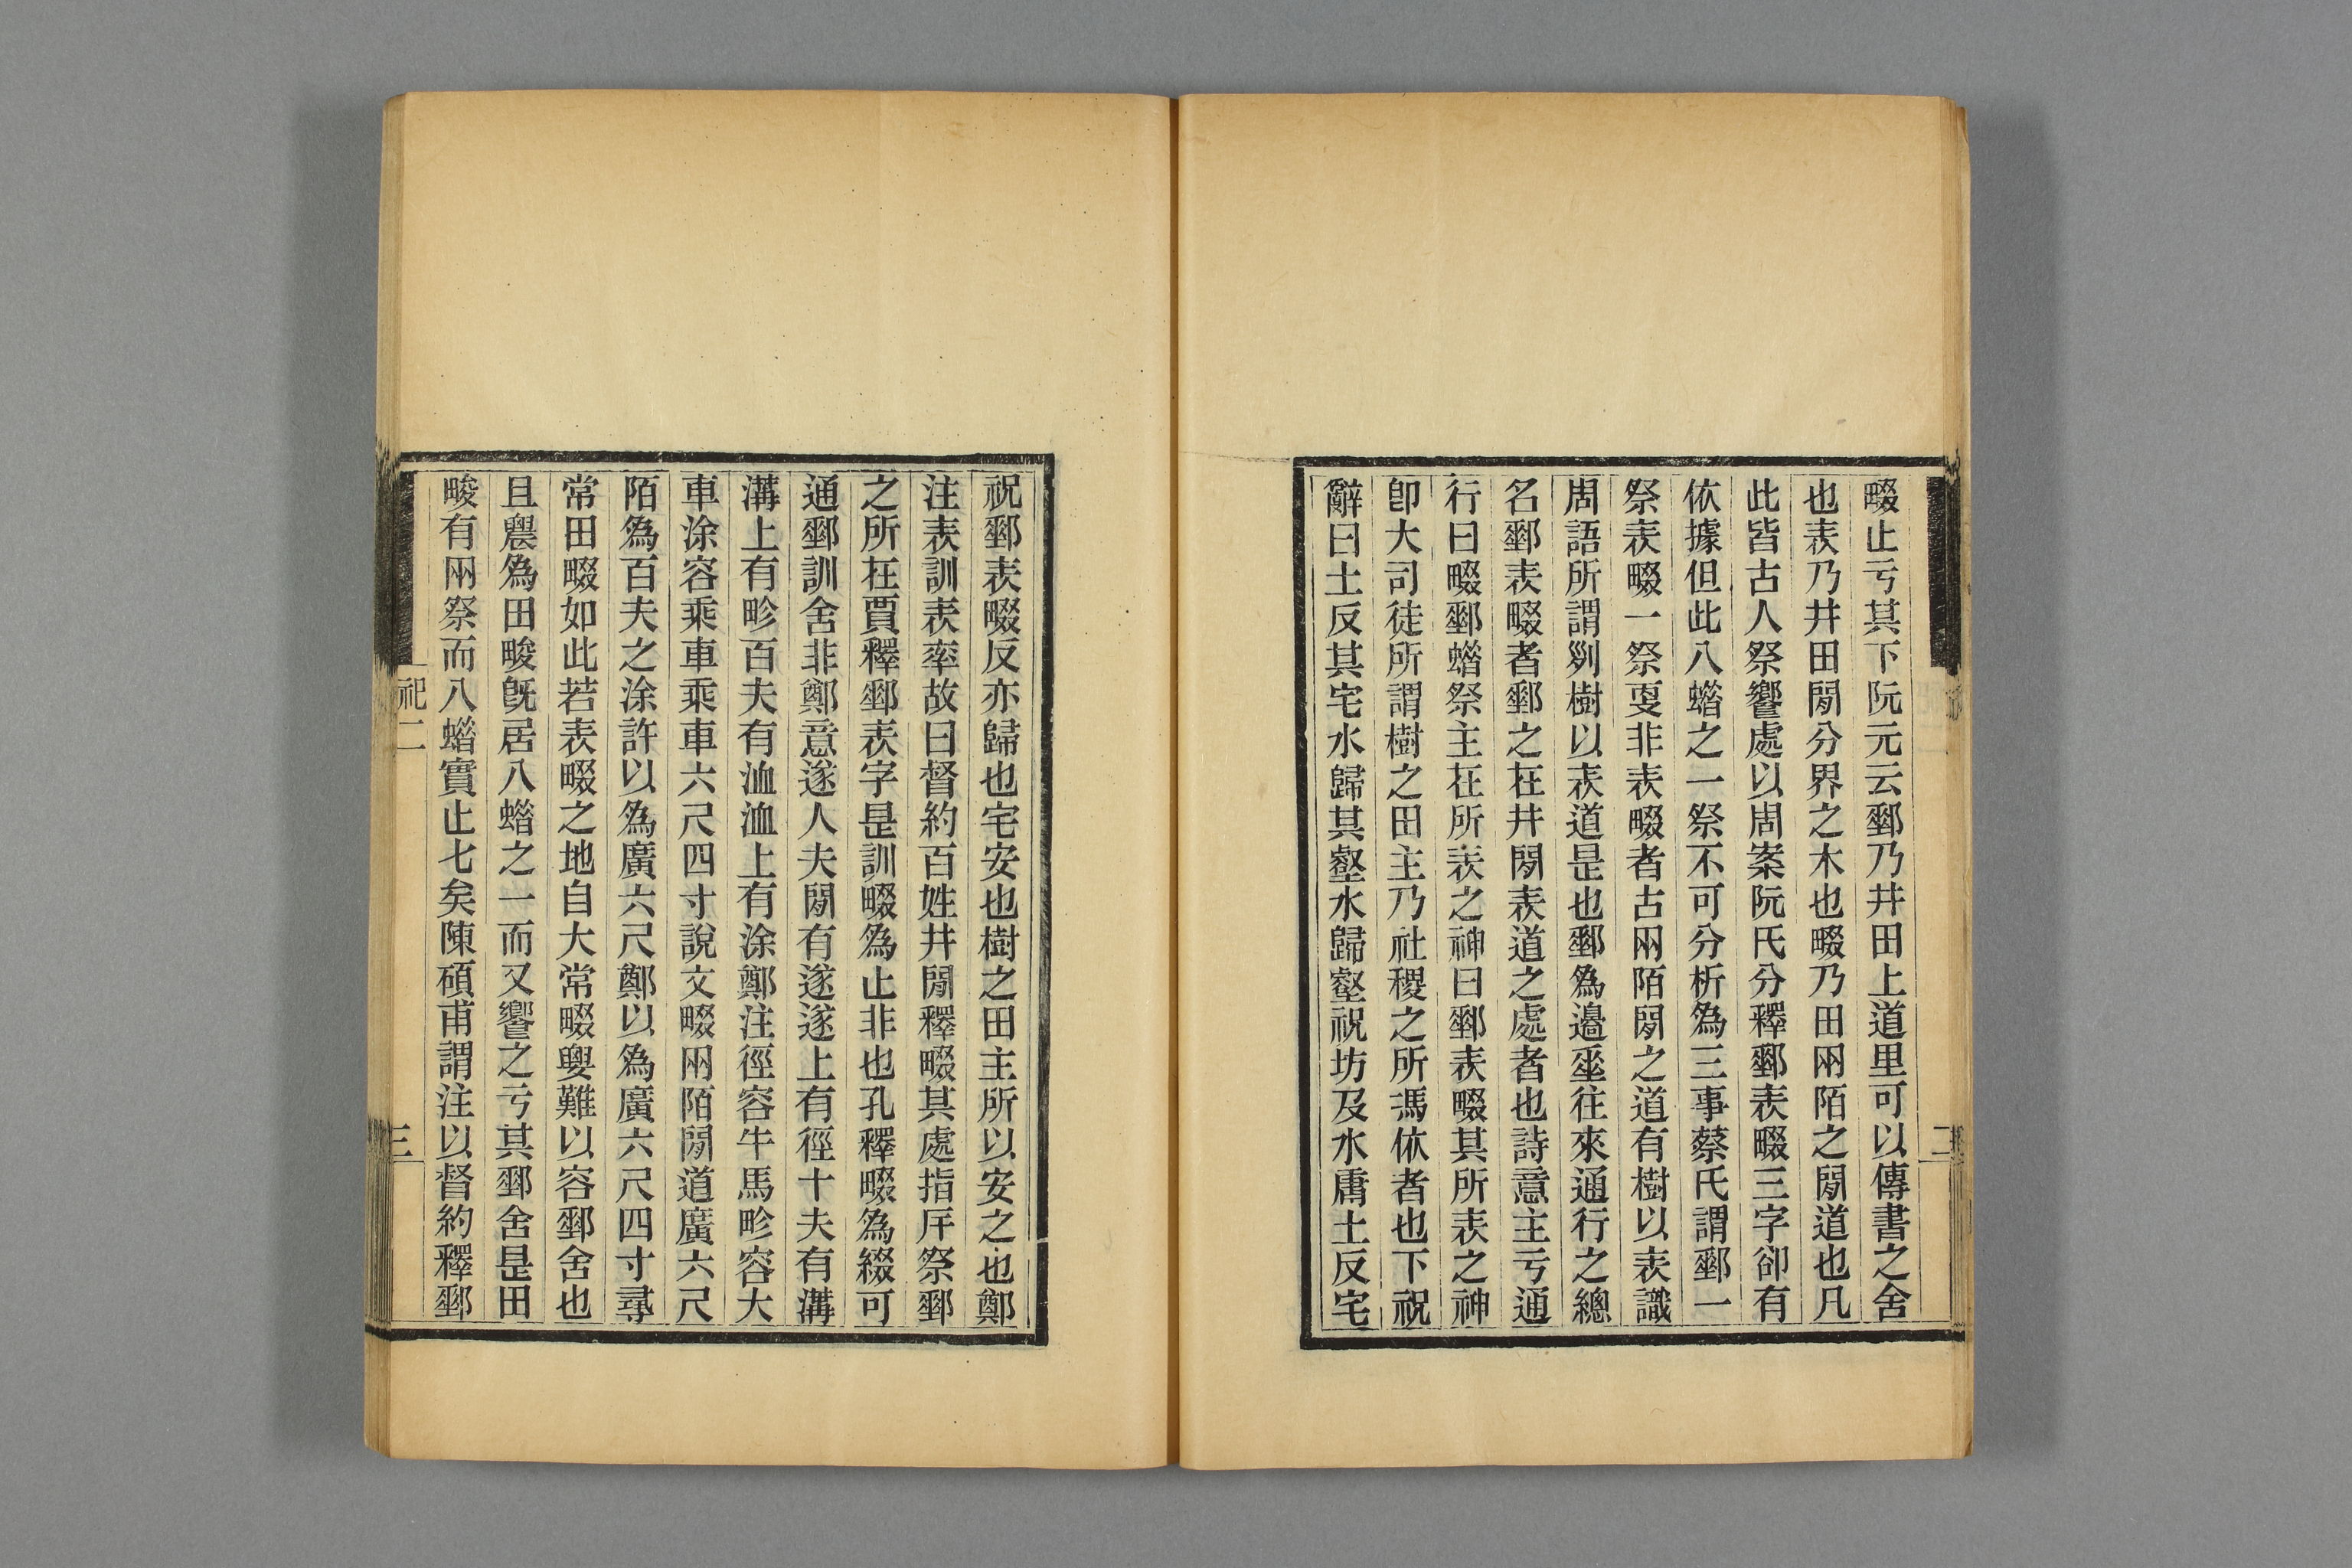 畷止亏其下阮元云郵乃井田上道里可以傳書之舍
也表乃井田閒分界之木也畷乃田兩陌之閒道也凡
此皆古人祭饗處以周案阮氏分釋郵表畷三字卻有
依據但此八蜡之一祭不可分析爲三事蔡氏謂郵一
祭表畷一祭更非表畷者古兩陌閒之道有樹以表識
周語所謂列樹以表道是也郵爲邊垂往來通行之總
名郵表畷者郵之在井閒表道之處者也詩意主亏通
行曰畷郵蜡祭主在所表之神曰郵表畷其所表之神
卽大司徒所謂樹之田主乃社稷之所馮依者也下祝
辭曰土反其宅水歸其壑水歸壑祝坊及水庸土反宅
祝郵表畷反亦歸也宅安也樹之田主所以安之也鄭
注表訓表率故曰督約百姓井閒釋畷其處指斥祭郵
之所在賈釋郵表字是訓畷爲止非也孔釋畷爲綴可
通郵訓舍非鄭意遂人夫閒有遂遂上有徑十夫有溝
溝上有畛百夫有洫洫上有涂鄭注徑容牛馬畛容大
車涂容乘車乘車六尺四寸說文畷兩陌閒道廣六尺
陌爲百夫之涂許以爲廣六尺鄭以爲廣六尺四寸尋
常田畷如此若表畷之地自大常畷㪅難以容郵舍也
且農爲田畯旣居八蜡之一而又饗之亏其郵舍是田
畯有兩祭而八蜡實止七矣陳碩甫謂注以督約釋郵
祀二
三
二